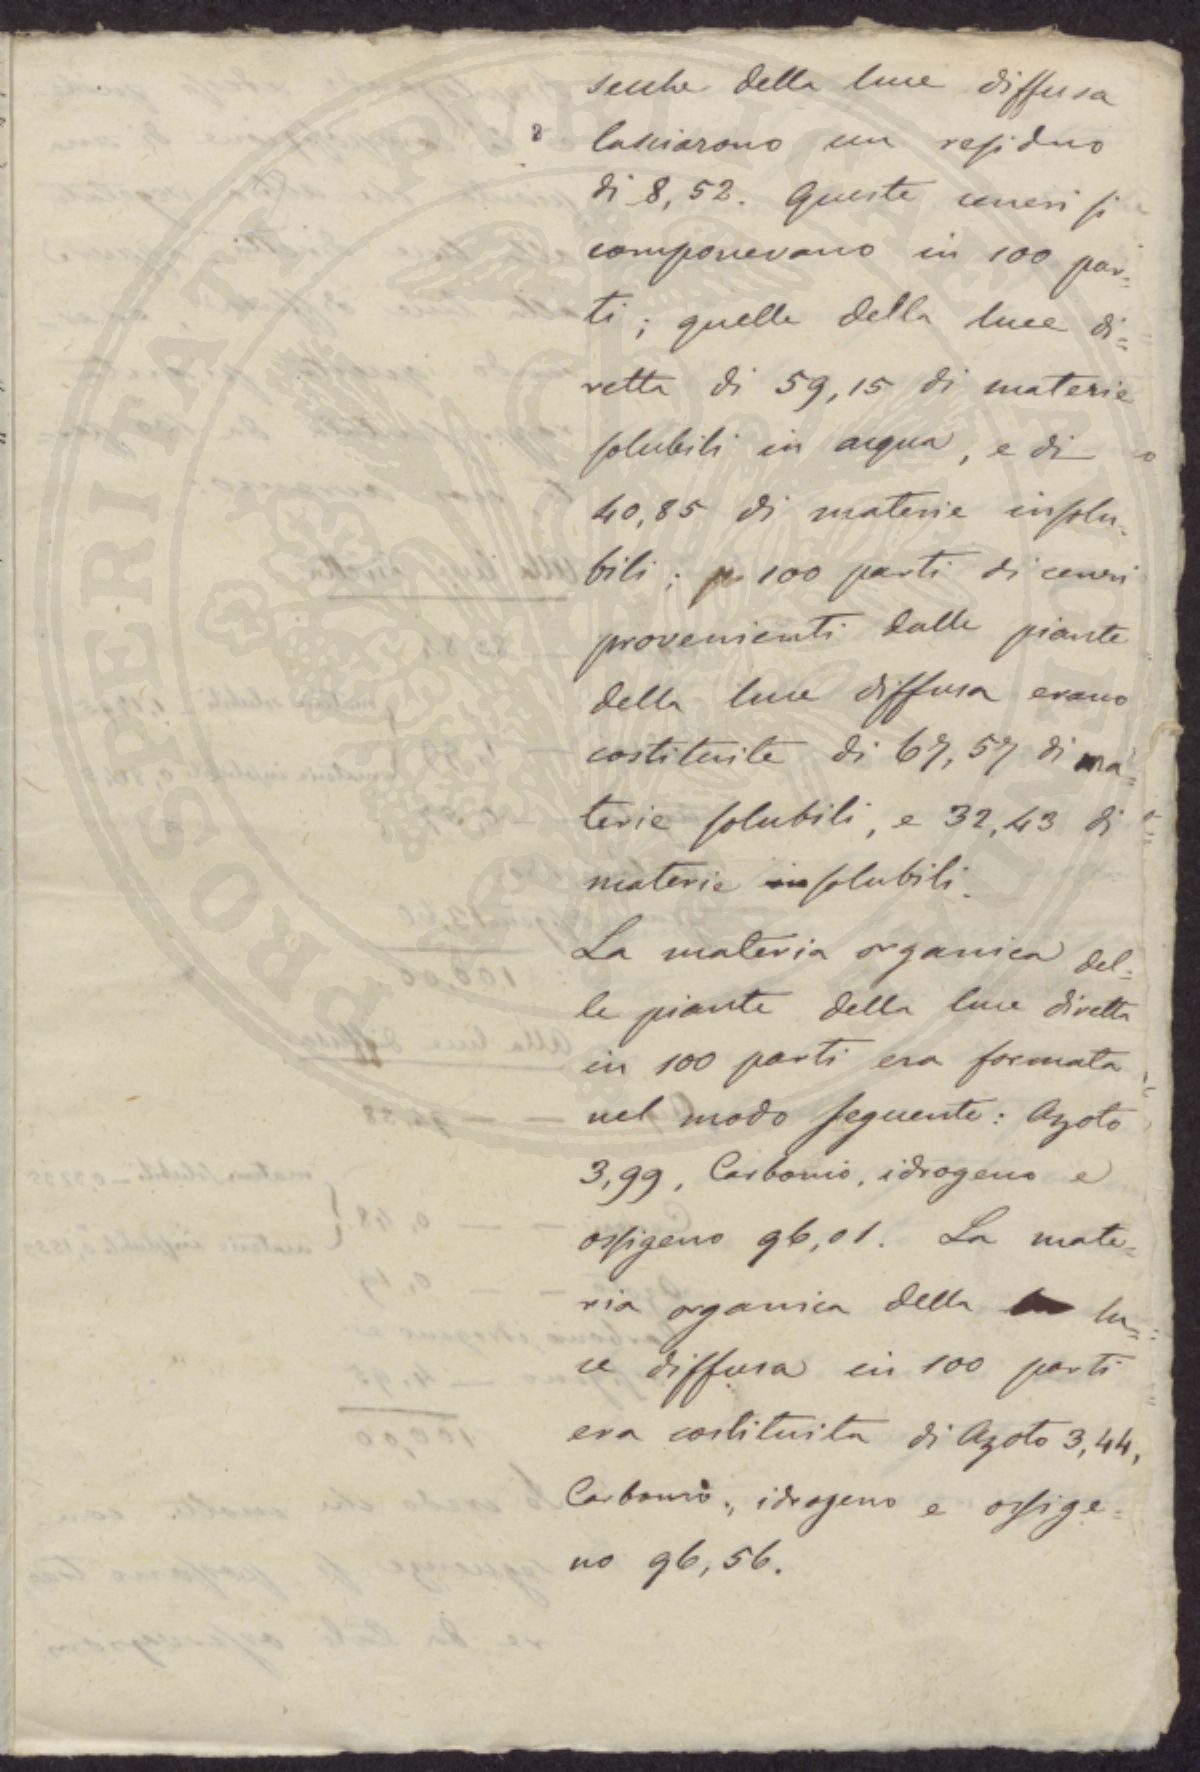 secche della luce diffusa
lasciarono un residuo
di 8,52. Queste ceneri si
componevano in 100 par=
ti; quelle della luce di=
retta di 59,15 di materie
solubili in acqua, e di
40,85 di materie insolu=
bili; p 100 parti di ceneri
provenienti dalle piante
della luce diffusa erano
costituite di 67,57 di ma=
terie solubili, e 32,43 di
materie insolubili.
La materia organica del=
le piante della luce diretta
in 100 parti era formata
nel modo seguente: Azoto
3,99, Carbonio, idrogeno e
ossigeno 96,01. La mate=
ria organica della lu=
ce diffusa in 100 parti
era costituita di Azoto 3,44,
Carbonio, idrogeno e ossige=
no 96,56.
PROSPERITATI PVBLICAE AVGENDAE